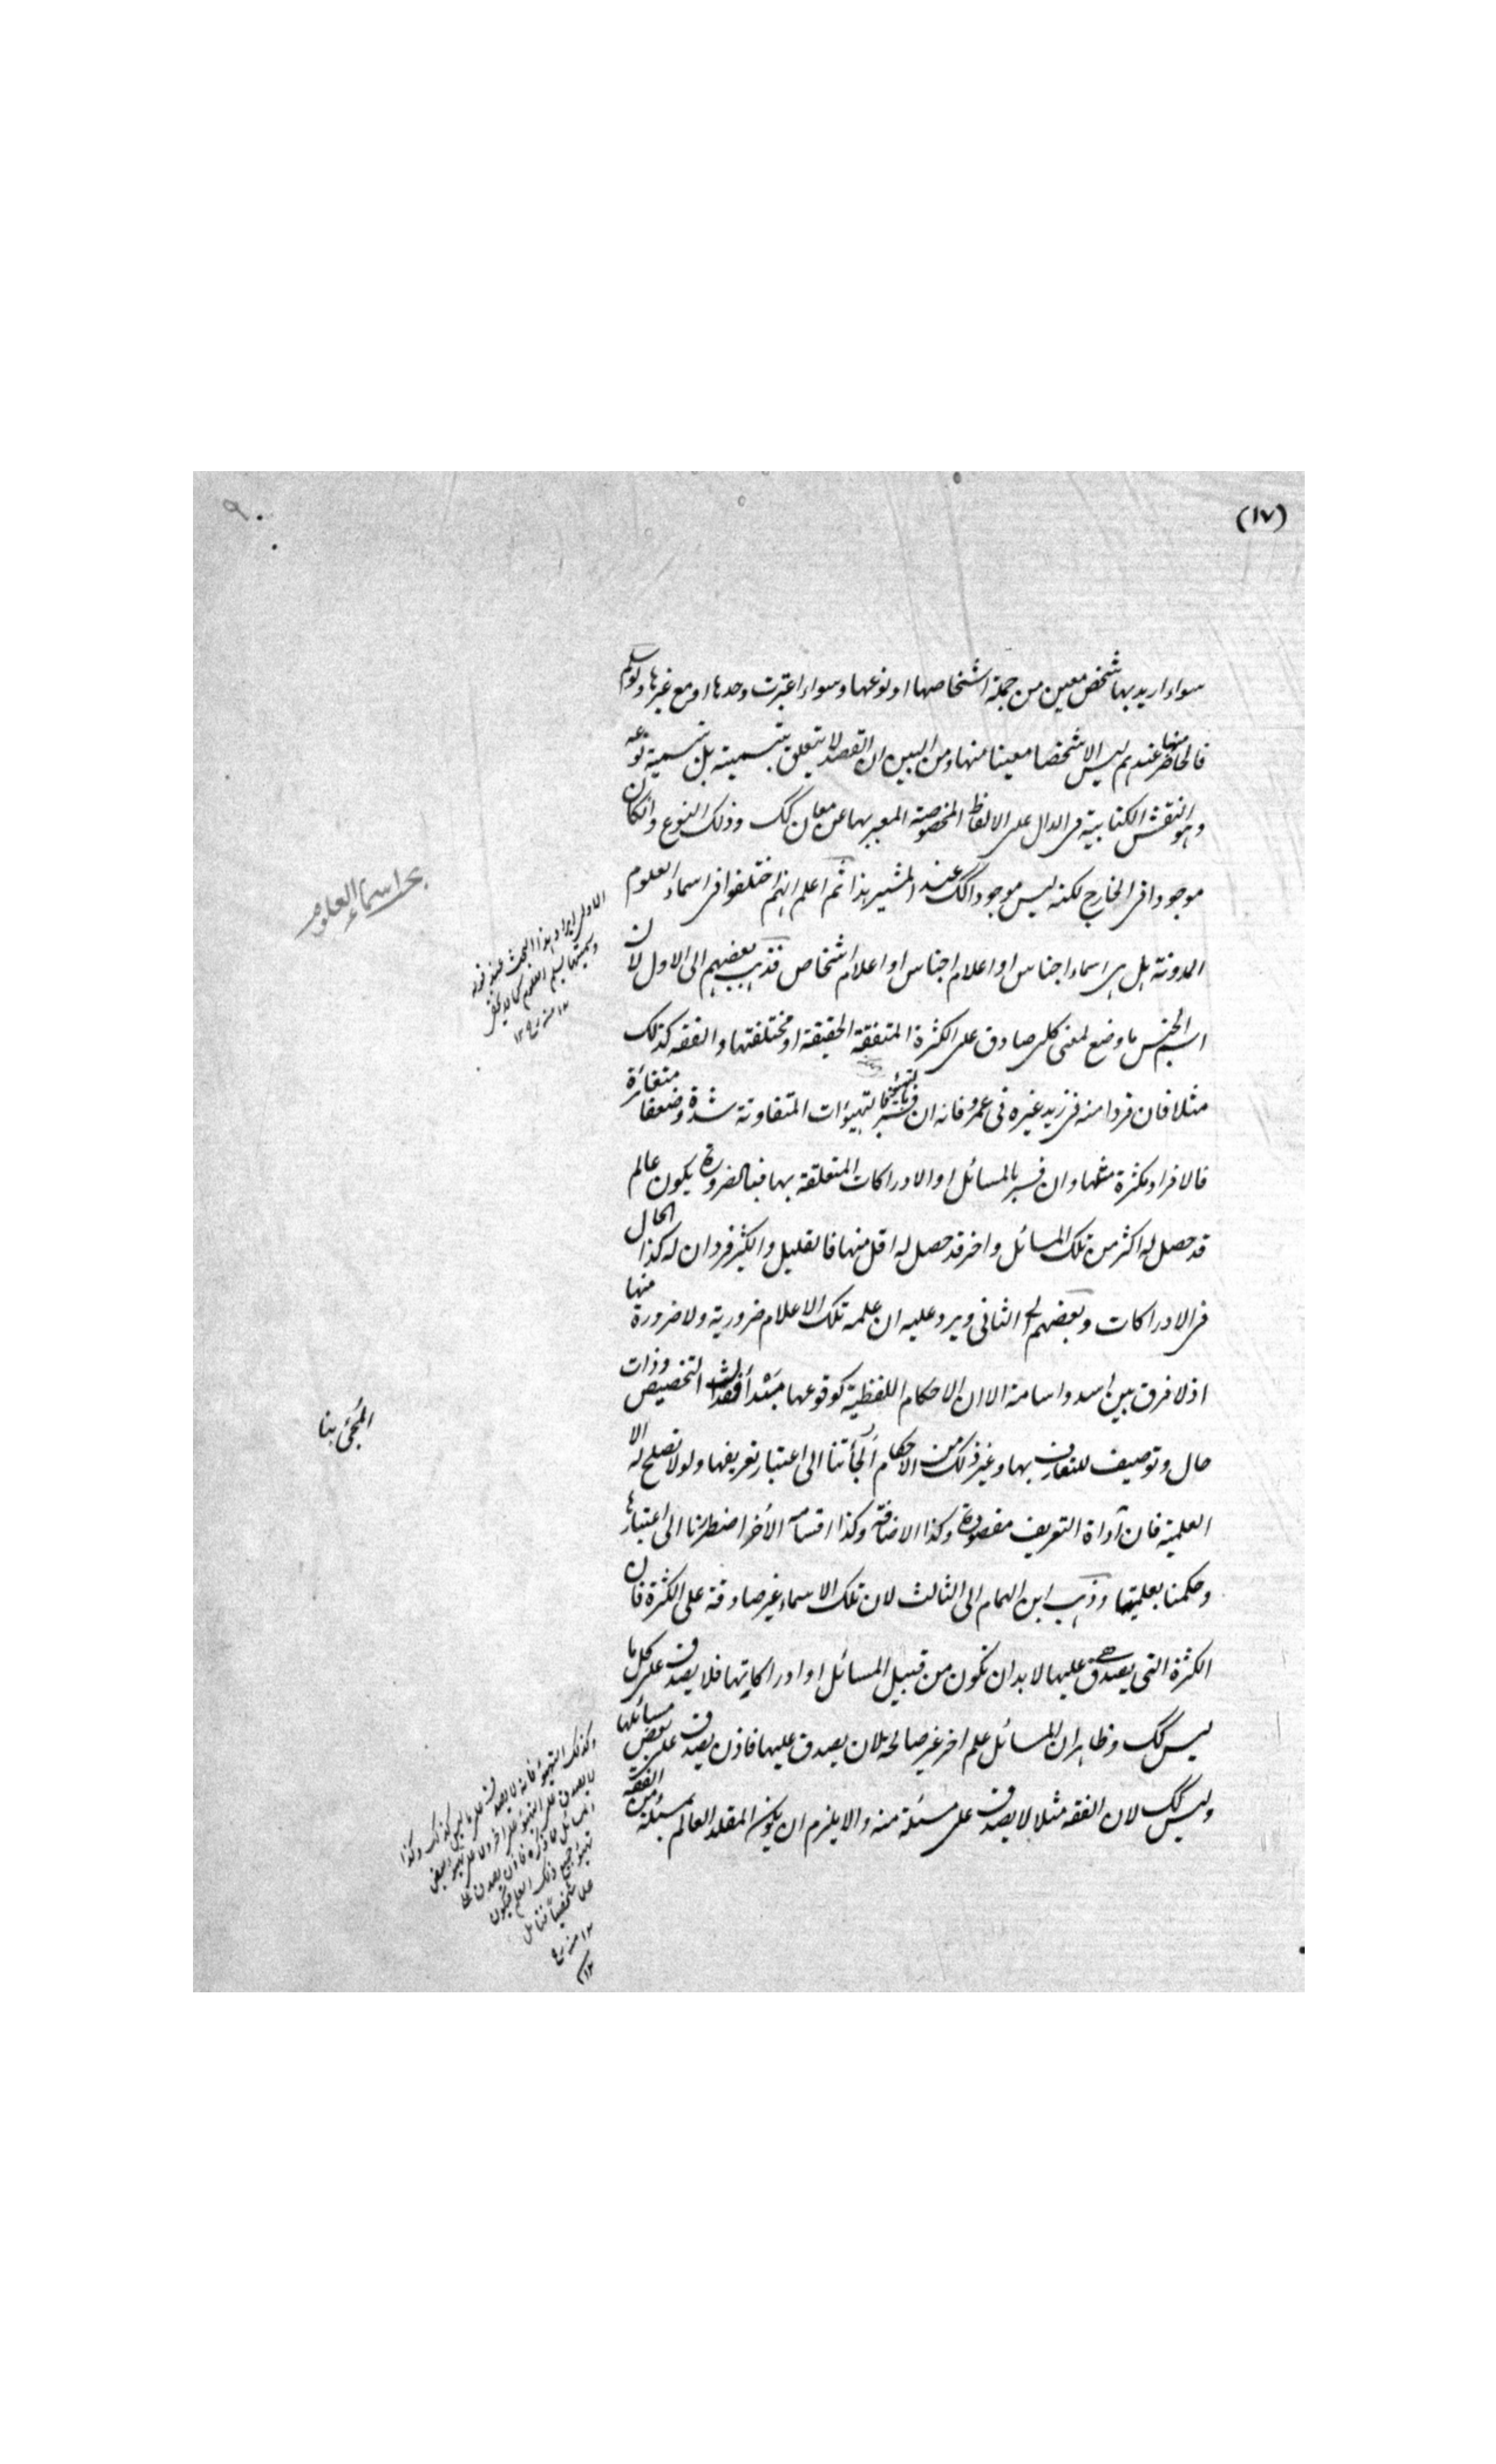 (١٧)
سواء اريد بها شخص معين من جملة اشخاصها او نوعها وسواء اعتبرت وحدها او مع غيرها ولو سلم
فالحاضر منها عندهم ليس الا شخصا معينا منها ومن البين ان القصد لا يتعلق بتسميته بل تسمية نوعه
وهو النقش الكتابية فى الدال على الالفاظ المخصوصة المعبر بها عن معان كك وذلك النوع وان كان
موجودا فى الخارج لكنه ليس موجودا كك عند المشير هذا ثم اعلم انهم اختلفوا فى اسماء العلوم
المدونة هل هى اسماء اجناس او اعلام اجناس او اعلام اشخاص فذهب بعضهم الى الاول لان
اسم الجنس ما وضع لمعنى كلى صادق على الكثرة المتفقة الحقيقة او مختلفتها والفقه كذلك
مثلا فان فردا منه فى زيد غيره فى عمرو فانه ان فسر بالتهيؤات المتفاوتة شدة وضعفا متغائرة
فالافراد متكثرة منها وان فسر بالمسائل او الادراكات المتعلقة بها فبالضرورة يكون عالم
قد حصل له اكثر من تلك المسائل واخر قد حصل له اقل منها فالقليل والكثير فردان له كذا الحال
فى الادراكات وبعضهم الى الثانى ويرد عليه ان علمية تلك الاعلام ضرورية ولا ضرورة منها
اذ لا فرق بين اسد واسامة الا ان الاحكام اللفظية كوقوعها مبتدأ فقدان التخصيص وذات
حال وتوصيف للتعارف بها وغير ذلك من الاحكام ألجأتنا الى اعتبار تعريفها ولولا تصلح له الا
العلمية فان أداة التعريف مفقودة وكذا الاضافة وكذا اقسامه الأخر اضطررنا الى اعتبارها
وحكمنا بعلميتها وذهب ابن الهمام الى الثالث لان تلك الاسماء غير صادقة على الكثرة فان
الكثرة التى يصدق عليها لا بد ان تكون من قبيل المسائل او ادراكاتها فلا يصدق على كل ما
ليس كك وظاهر ان المسائل علم اخر غير صالحة لان يصدق عليها فاذن يصدق على بعض مسائلها
وليس كك لان الفقه مثلا لا يصدق على مسئلة منه والا يلزم ان يكون المقلد العالم بمسئلة من الفقه
بحث اسماء العلوم
الاولى ايراد هذا البحث عند قوله
١٢ منه
المجئ بنا
وكذلك التهيؤ فانه لا يصدق على ما ليس كذلك وكذا
١٢ منه